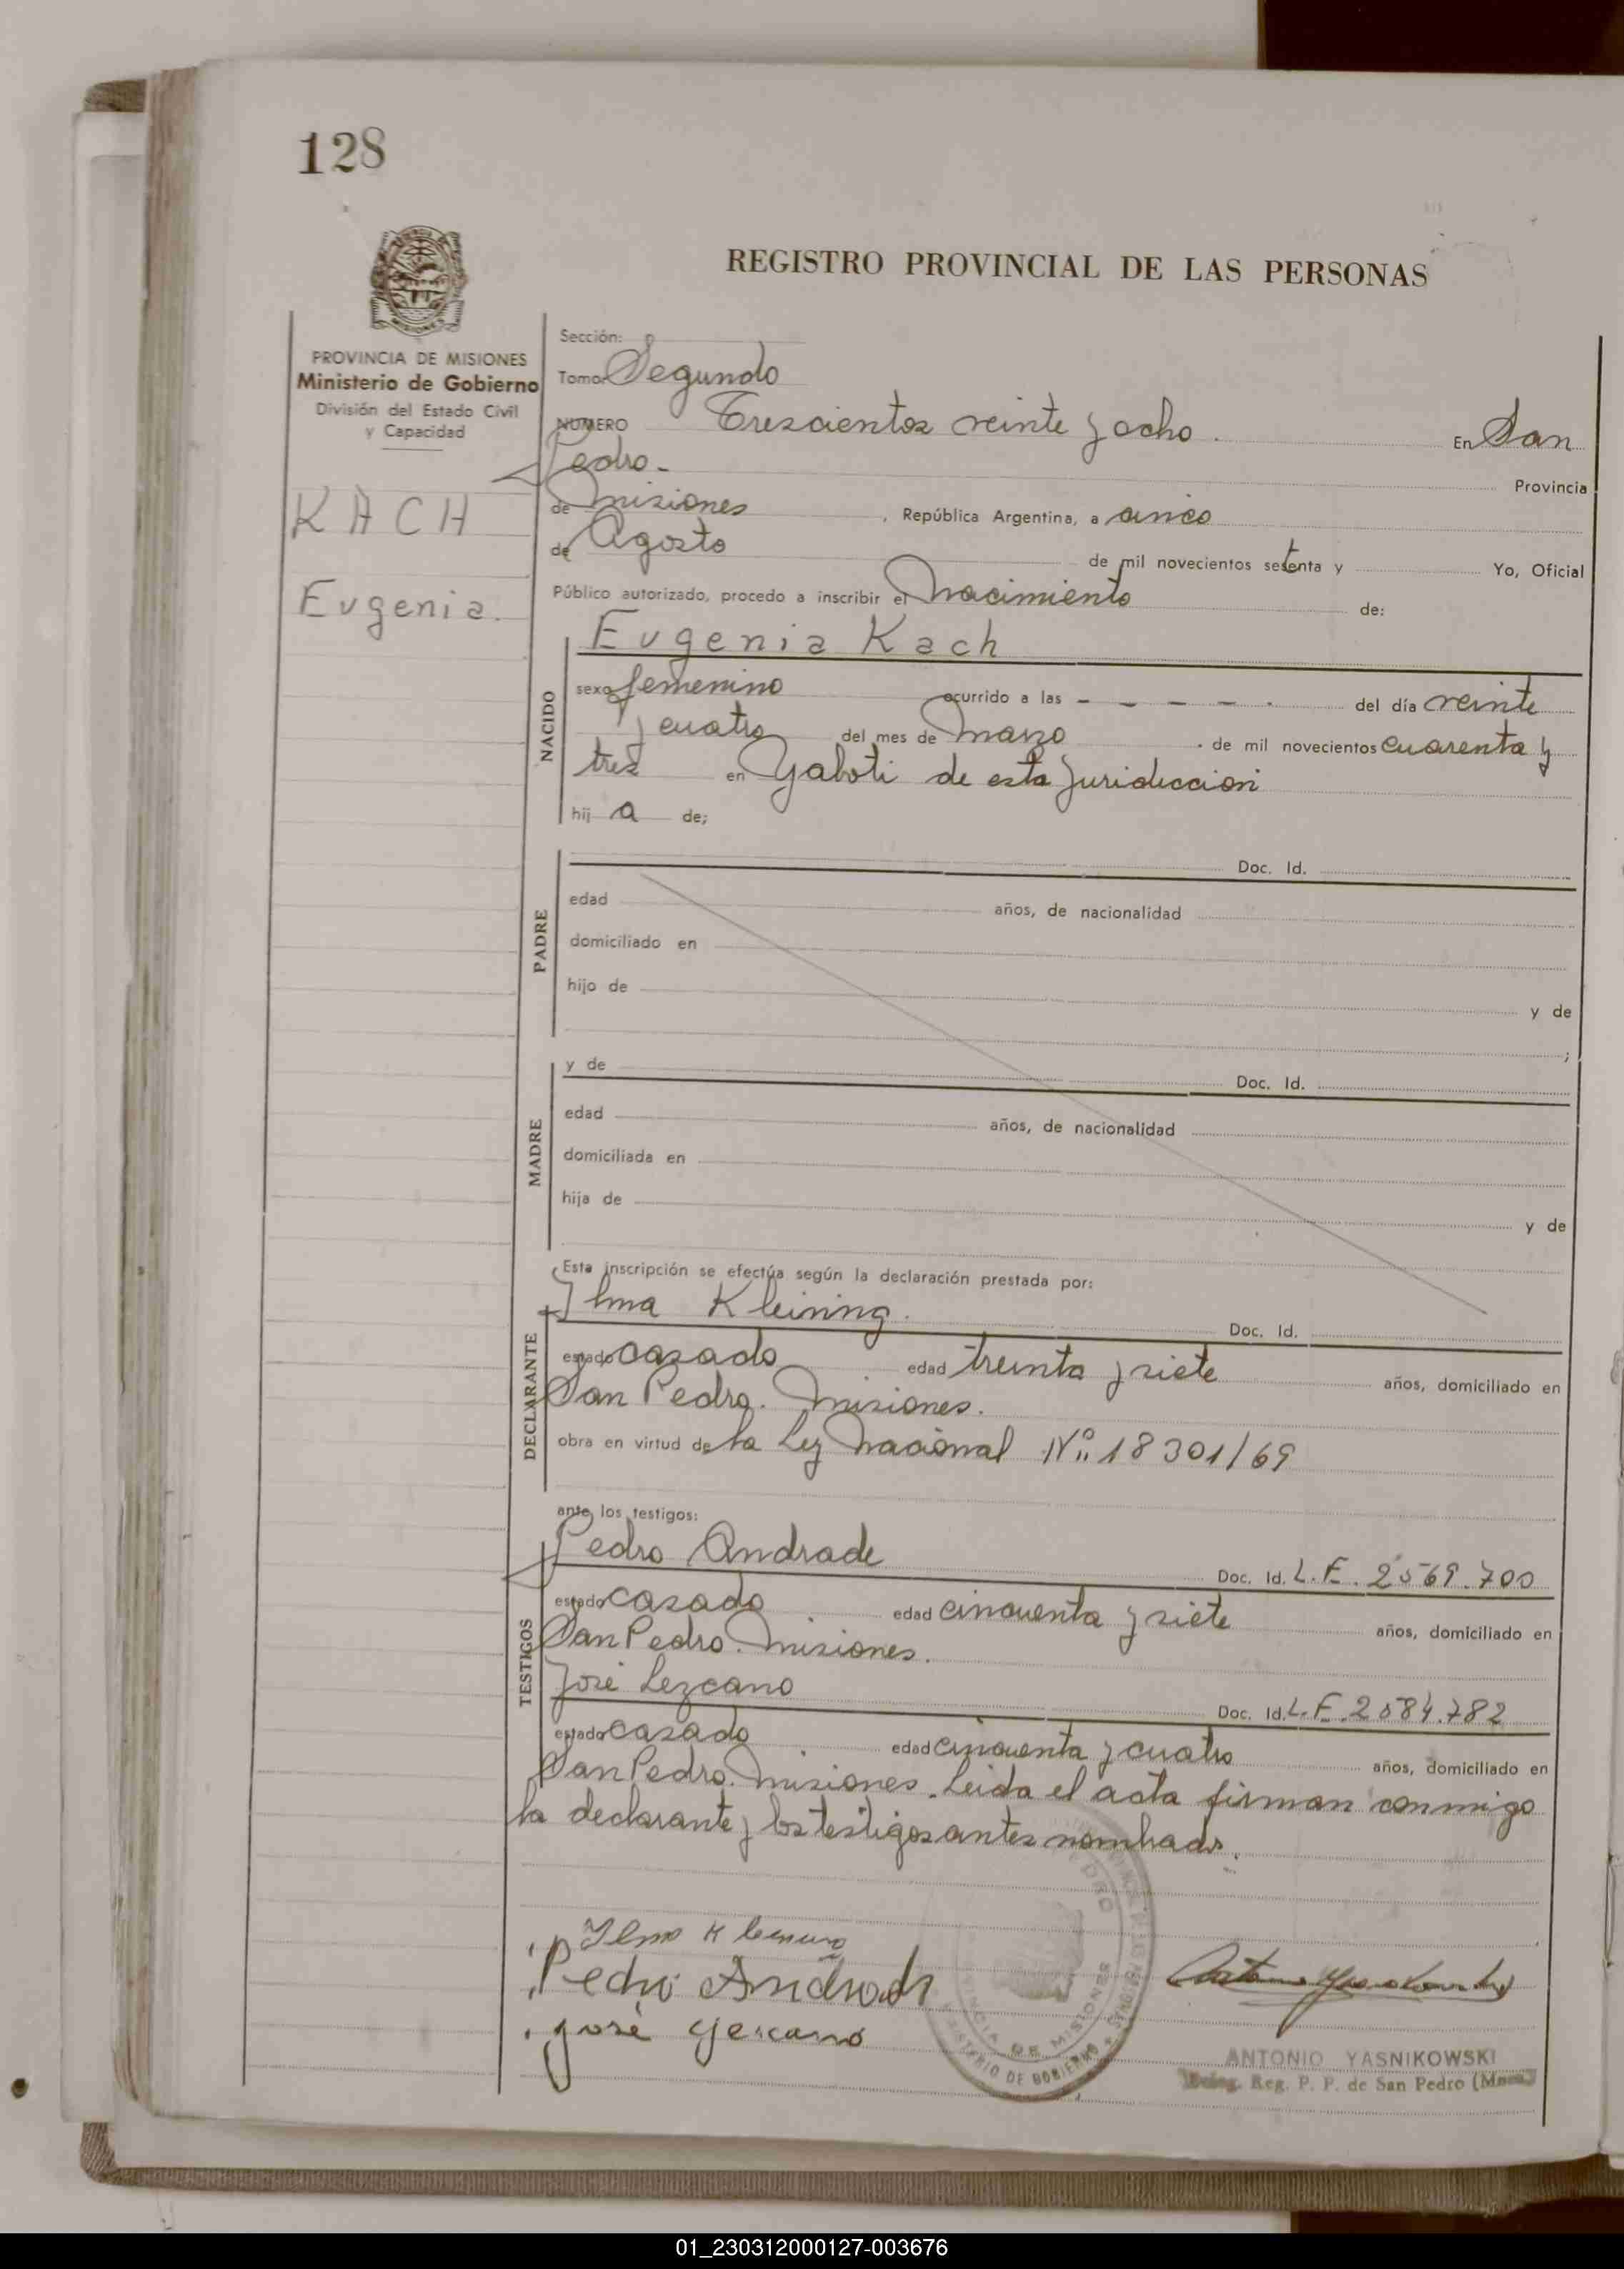 128
REGISTRO PROVINCIAL DE LAS PERSONAS
PROVINCIA DE MISIONES
Ministerio de Gobierno
División del Estado Civil
y Capacidad
KACH
Eugenia.
Sección:
Tomo: Segundo
NUMERO Trescientos veinte y ocho. En San
Pedro- Provincia
de Misiones, República Argentina, a cinco
de Agosto de mil novecientos setenta y Yo, Oficial
Público autorizado, procedo a inscribir el Nacimiento de:
NACIDO
Eugenia Kach
sexo femenino ocurrido a las - - - - - del día veinte
y cuatro del mes de Marzo de mil novecientos cuarenta y
tres en Yaboti de esta Juridiccion
hij a de;
PADRE
Doc. Id.
edad años, de nacionalidad
domiciliado en
hijo de y de
;
MADRE
y de Doc. Id.
edad años, de nacionalidad
domiciliada en
hija de y de
Esta inscripción se efectúa según la declaración prestada por:
DECLARANTE
Ilma Kleining. Doc. Id.
estado casado edad treinta y siete años, domiciliado en
San Pedro. Misiones.
obra en virtud de la Ley Nacional Nº 18301/69
ante los testigos:
TESTIGOS
Pedro Andrade Doc. Id. L.E. 2569.700
estado casado edad cincuenta y siete años, domiciliado en
San Pedro. Misiones.
José Lezcano Doc. Id. L.E. 2584.782
estado casado edad cincuenta y cuatro años, domiciliado en
San Pedro. Misiones. Leida el acta firman conmigo
la declarante y los testigos antes nombrados.
Pedro Andrade
José
PROVINCIA DE MISIONES
MINISTERIO DE GOBIERNO
ANTONIO YASNIKOWSKI
Deleg. Reg. P. P. de San Pedro (Mnes)
01_230312000127-003676